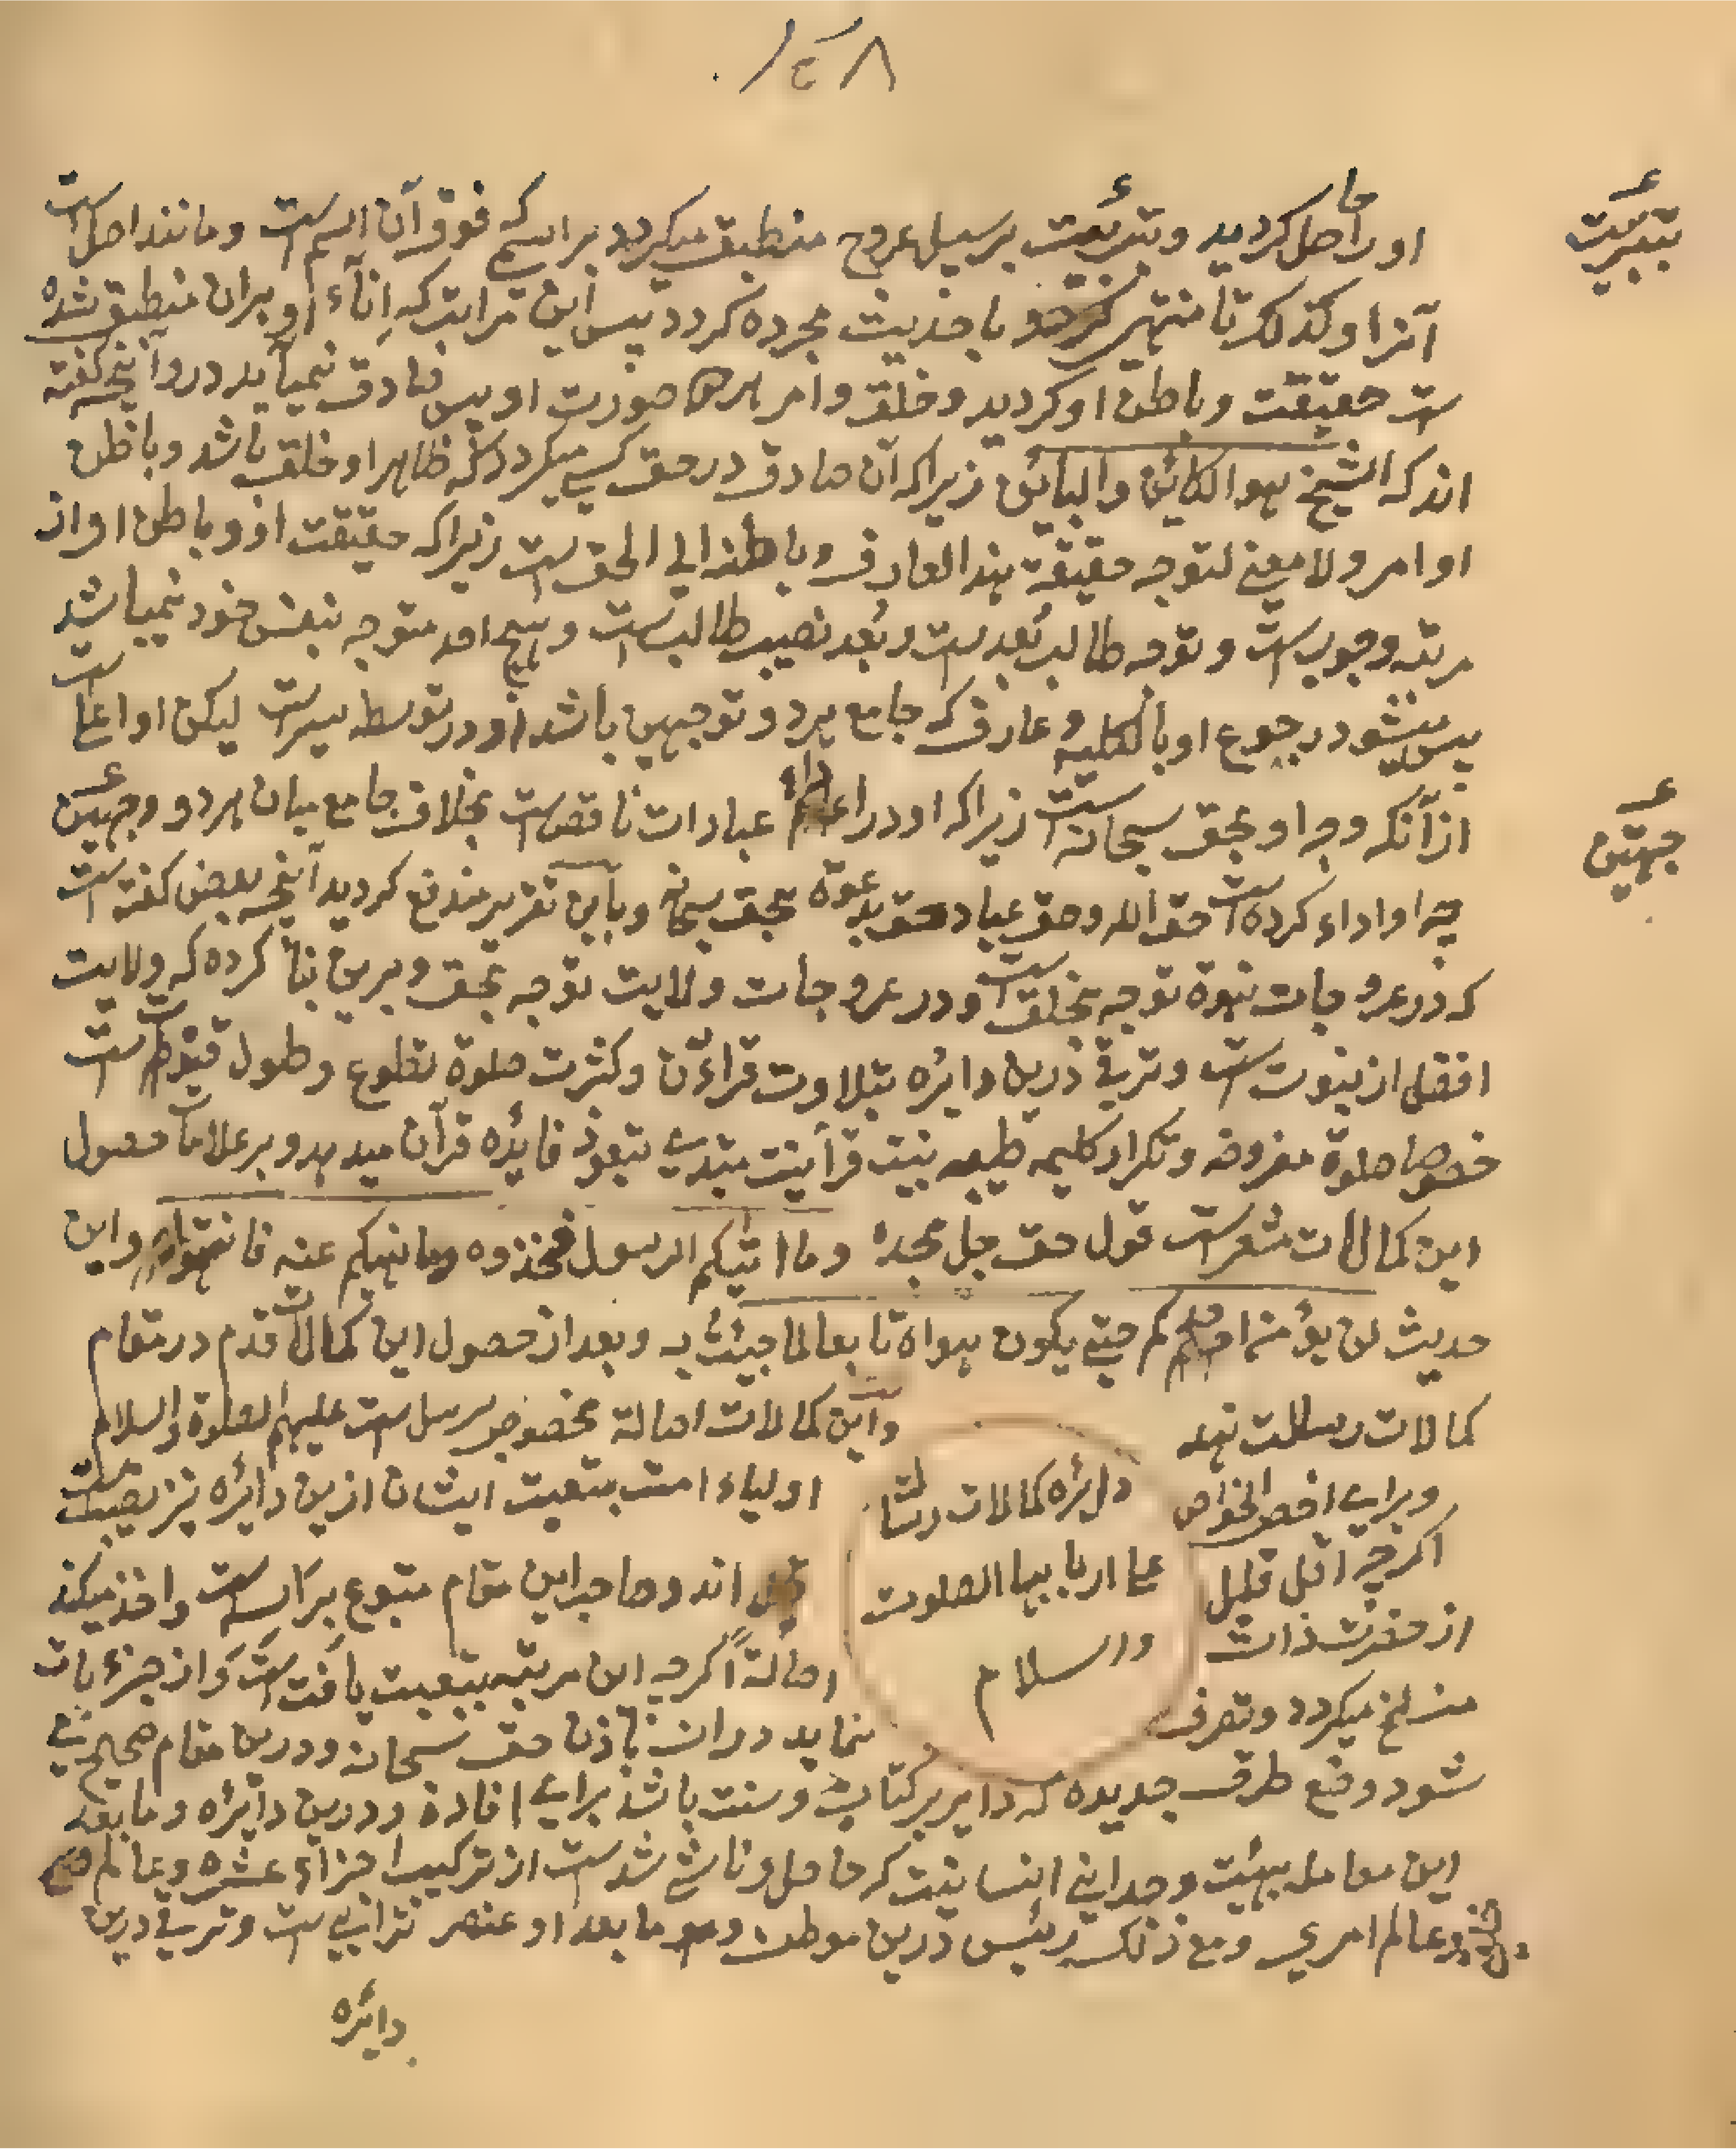 او را حاصل گردید وبتدریت برسبیل عروج منطبق میگردد براسمی که فوق آن اسم ست ومانند اصل ست
آنرا وکذلک تا منتهی گردد با حدیت مجرده گردد پس این مراتب که اناء او بران منطبق شده
ست حقیقت وباطن او گردید وخلق وامر هر دو صورت او پس صادق نمی آید درو آنچه گفته
اند که الشیخ هو الکائن والبائن زیراکه آن صادق در حق کسی میگردد که ظاهر او خلق باشد وباطن
او امر ولا معنی لتوجه حقیقة هذا العارف وباطنه الی الحق ست زیراکه حقیقت او وباطن او از
مرتبه وجوب ست وتوجه طالب بعد ست وبعد نصیب طالب ست وهیچ احد متوجه بنفس خود نمیباشد
پس میشود رجوع او بالکلیه وعارف که جامع هر دو توجهین باشد او در توسط سیر ست لیکن او اعلی ست
از آنکه وجه او بحق سبحانه ست زیراکه او در اداء عبادات ناقص ست بخلاف جامع میان هر دو وجهین
چه او اداء کرده ست حق الله وحق عباد حق بدعوة بحق سبحانه وباین تقریر مندفع گردید آنچه بعض گفته ست
که در عروجات نبوة توجه بخلق ست ودر عروجات ولایت توجه بحق وبرین بنا کرده که ولایت
افضل از نبوت ست وترقی درین دایره بتلاوت قرآن وکثرت صلوة تطوع وطول قنوط ست
خصوصا صلوة مفروضه وتکرار کلیمه طیبه بنیت قرآنیت مبتدی بتعوذ فایده قرآن میدهد وبر علامات حصول
این کمالات مشعر ست قول حق جل مجده وما اتیکم الرسول فخذوه وما نهیکم عنه فانتهوا واین
حدیث لن یؤمن احدکم حتی یکون هواه تابعا لما جیئت به وبعد از حصول این کمالات قدم در مقام
کمالات رسالت نهد واین کمالات اصالة مخصوص برسل ست علیهم الصلوة والسلام
وبرای اخص الخواص اولیاء امت بتبعیت ایشان ازین دایره نیز نصیب ست
اگرچه اقل قلیل اند وصاحب این مقام متبوع براسه ست واخذ میکند
از حضرت ذات اصالةً اگرچه این مرتبه بتبعیت یافته ست واز جزئیات
منسلخ میگردد وتصرف ینماید دران باذن حق سبحانه ودرین مقام صحیح می
دایره کمالات رسالت
علی اربابها الصلوت
والسلام
شود وضع طرق جدیده که دایر بر کتاب وسنت باشد برای افادة ودرین دایره وما بعد
این معامل بهیئت وحدانی انسانیت که حاصل وناشی شده ست از ترکیب اجزاء عشره وعالم
وعالم امری ومع ذلک رئیس درین موطن وما بعد او عنصر ترابی ست وترقی درین
دایره
بتبریت
جهتین